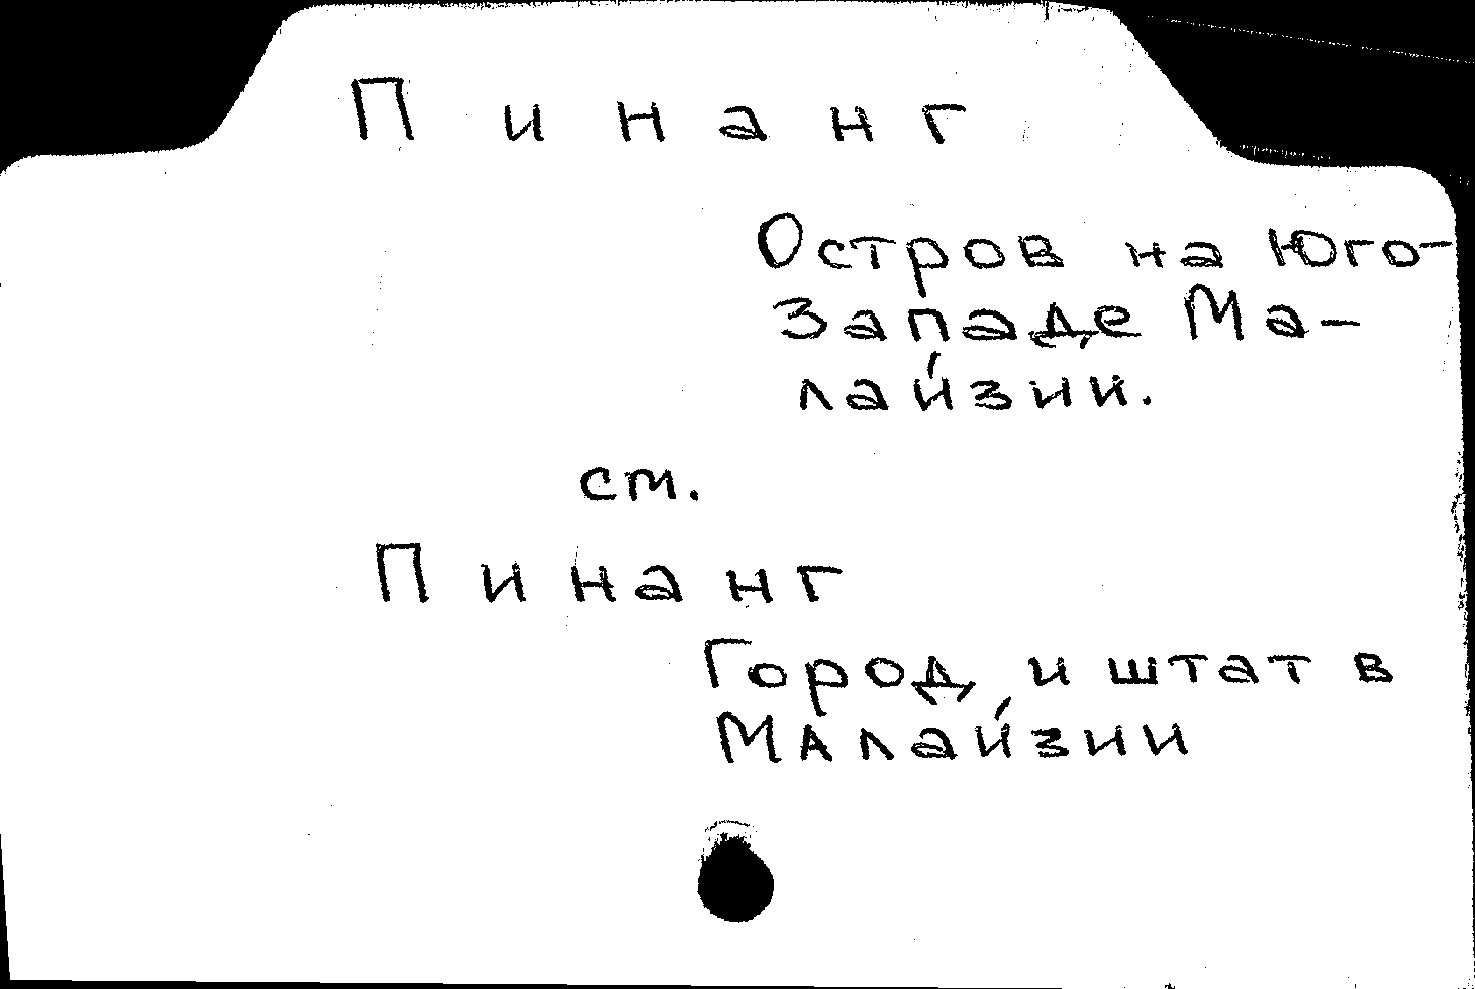 Пинанг
Остров на Юго-
Западе Ма-
лайзии.
см.
Пинанг
Город и штат в
Малайзии